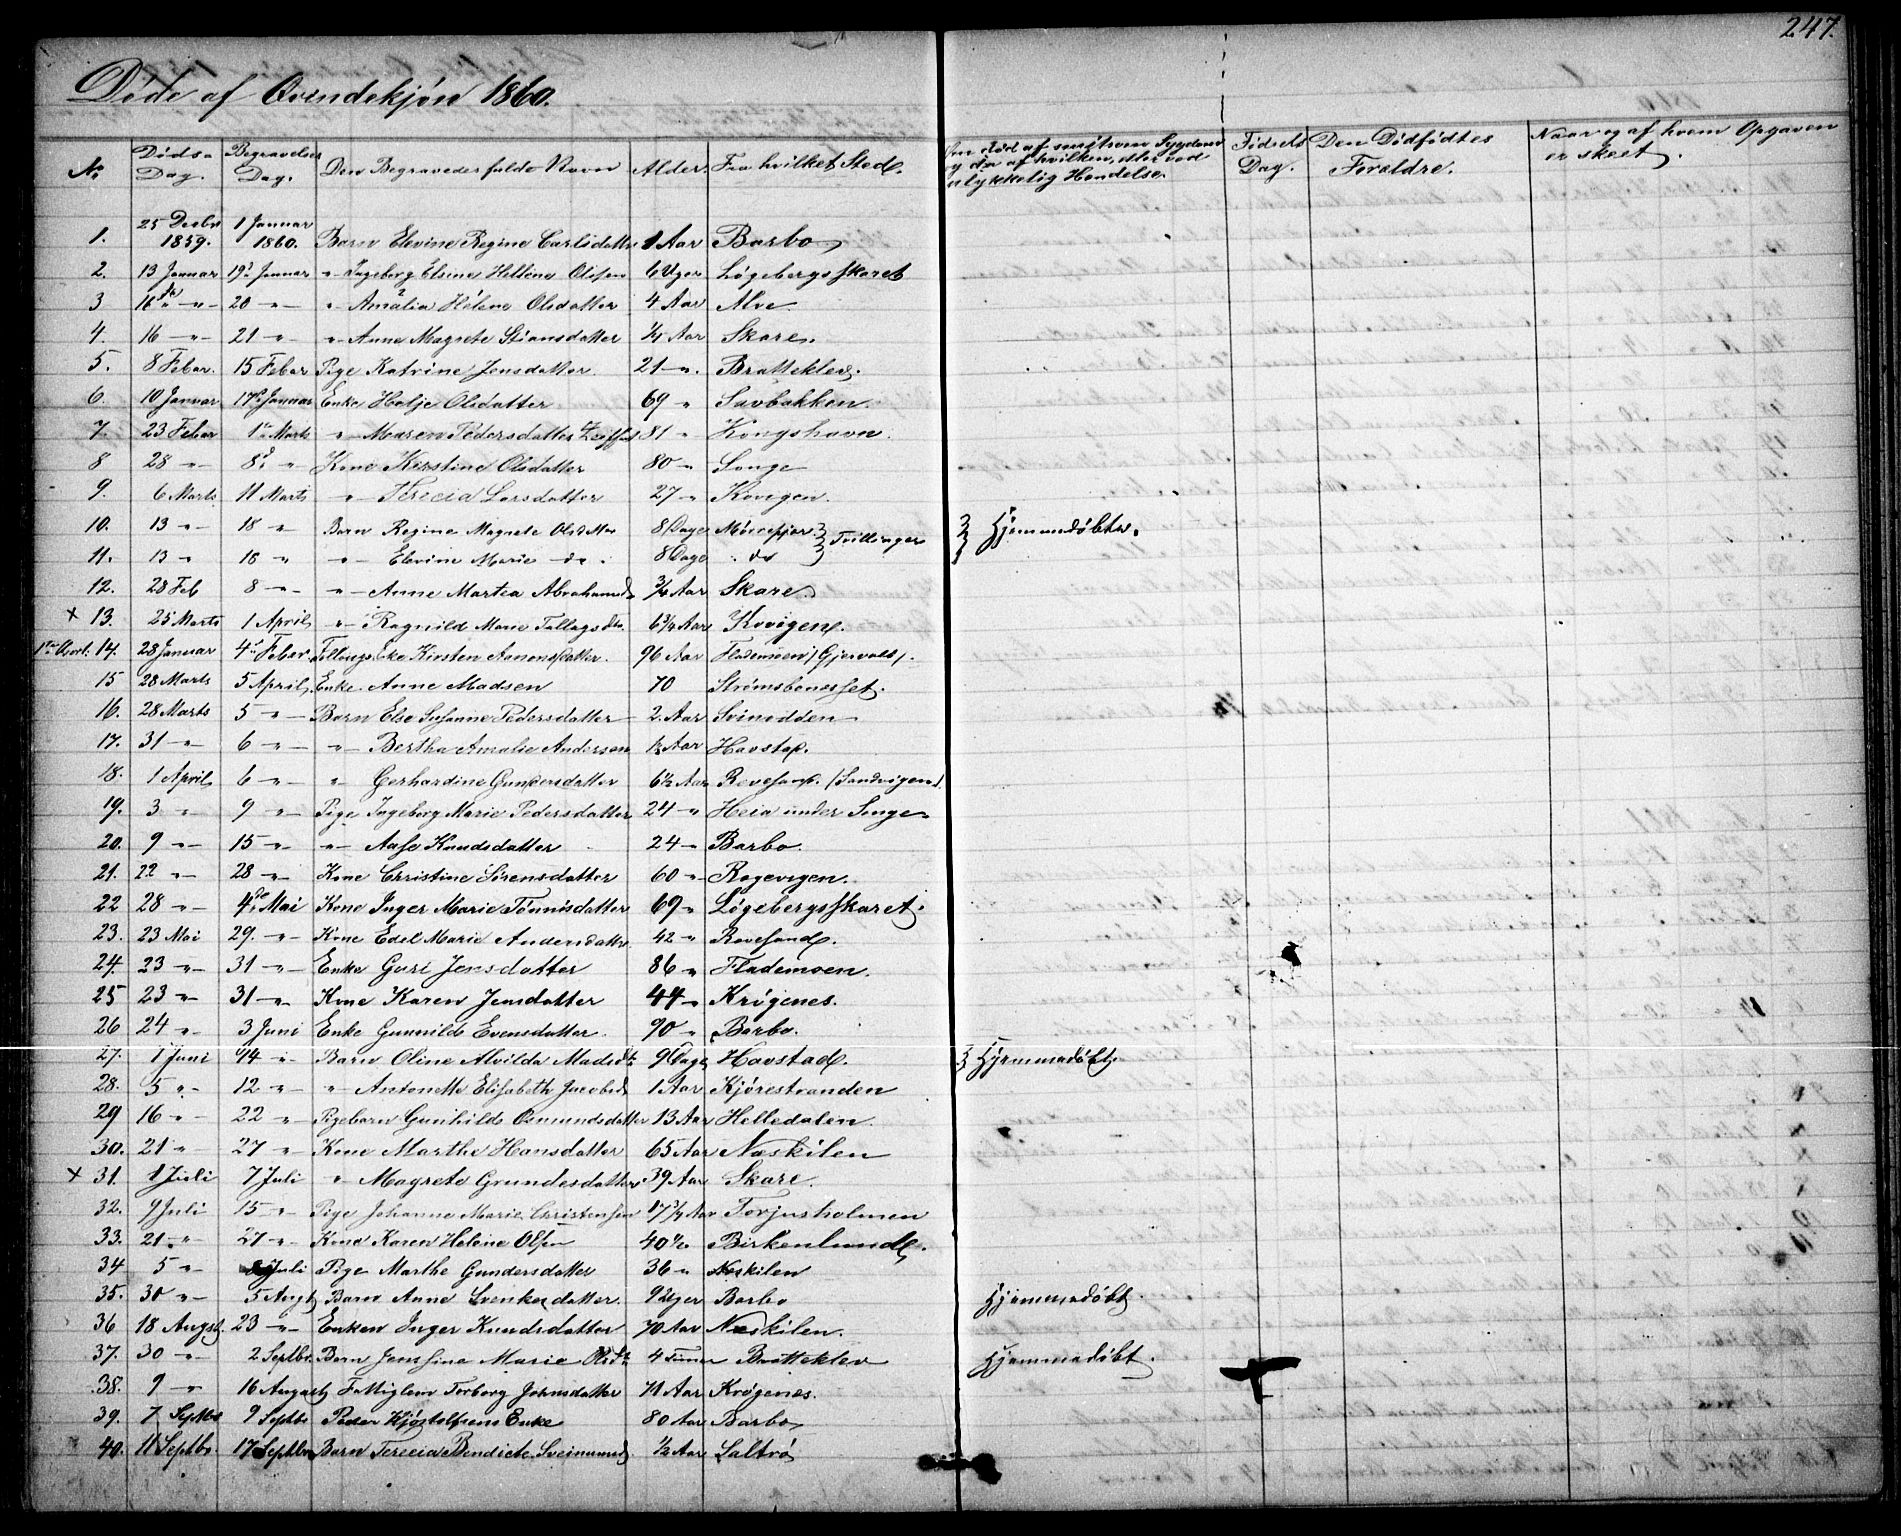 247.
Døde af Qvindekjøn 1860.
No Døds-Dag. Begravelses Dag. Den Begravedes fulde Navn Alder. Fra hvilket Sted. Om død af smitsom Sygdom og da af hvilken, eller ved ulykkelig Hendelse. Fødsels Dag. Den Dødfødtes Foreldre. Naar og af hvem Opgaven er skeet.
1. 25 Decbr 1859. 1 Januar 1860. Barn Elevine Regine Carlsdatter 1 Aar Barbo
2. 13 Januar 19 Januar " Ingeborg Elene Helline Olsen 6 Uger Løgebergsskaret
3 16 " 20 " " Amalia Helene Olsdatter 4 Aar Alve.
4. 16 " 21 " " Anne Magrete Stiansdatter 1/4 Aar Skare.
5. 8 Febar. 15 Febar Pige Katrine Jensdatter 21 ". Bratteklev.
6. 10 Januar 17 Januar Enke Helje Olsdatter 69 " Savbakken.
7. 23 Febar 1 Marts " Maren Pedersdatter 81 " Kongshavn.
8 28 " 8 " Kone Kirstine Olsdatter 80 " Songe
9. 6 Marts 11 Marts " Terecia Larsdatter 27 " Kovigen.
10. 13 " 18 " Barn Regine Magrete Olsdatter 8 Dage } Tvillinger } Hjemmedøbte.
11. 13 " 18 " " Elevine Marie do 8 Dage do
12. 28 Feb 8 " " Anne Martea Abrahamsd 3/4 Aar Skare.
x 13. 25 Marts 1 April " Ragnild Marie Tallagsdtr. 6 3/4 Aar Kovigen.
14. 28 Januar 4 Febar Enke Kirsten Aanonsdatter. 96 Aar Flademoen /Gjervols/.
15 28 Marts 5 April Enke Anne Madsen 70 Strømsbonesset.
16. 28 Marts 5 " Barn Else Susanne Pedersdatter 2. Aar Svinodden
17. 31 " 6 " " Bertha Amalie Andersen 1/2 Aar Havstad.
18. 1 April 6 " " Gerhardine Gundersdatter 6 1/2 Aar Revesand. /Sandvigen/.
19. 3 " 9 " Pige Ingeborg Marie Pedersdatter 24 " Heia under Songe
20. 9 " 15 " " Aase Knudsdatter 24 " Barbo.
21. 22 " 28 " Kone Christine Sørensdatter 60 " Ragevigen.
22 28 " 4 Mai Kone Inger Marie Tønnisdatter 69 " Løgebergsskaret.
23. 23 Mai 29. " Kone Edel Marie Andersdatter 42 " Revesand.
24. 23 " 31 " Enke Guri Jensdatter 86 " Flademoen.
25 23 " 31 " Kone Karen Jensdatter 44 " Krøgenes.
26 24 " 3 Juni Enke Gunnild Evensdatter. 90 " Barbo.
27. 1 Juni 14 " Barn Oline Alvilda Madsdt. 9 Dage Havstad. } Hjemmedøbt.
28. 5 " 12 " " Antonette Elisabeth Jacobsd 1 Aar Kjørestranden
29 16 " 22 " Pigebarn Gunhilds Osmundsdatter 13 Aar Helledalen.
30. 21 " 27 " Kone Marthe Hansdatter 65 Aar Neskilen
x 31. 1 Juli 7 Juli " Magrete Grundesdatter 39 Aar Skare.
32. 9 Juli 15 " Pige Johanne Marie Christensen 17 3/4 Aar Torjusholmen
33. 21. " 27 " Kone Karen Helene Olsen 40 1/2 Birkenlund.
34 5 " Juli Pige Marthe Gundersdatter 36 " Neskilen
35. 30 " 5 Augt Barn Anne Svenkesdatter. 9 Uger Barbo Hjemmedøbt.
36 18 Augst 23 " Enken Inger Knudsdatter 70 Aar Neskilen.
37. 30 " 2 Septbr. Barn Jensine Marie Olsdt 4 Timer Bratteklev Hjemmedøbt.
38. 9 " 16 August Fattiglem Torborg Johnsdatter 71 Aar Krøgenes.
39. 7 Septbr 9 Septbr Peder Enke 80 Aar Barbo
40. 11 Septbr. 17 Septbr Barn Terecia Bendicte Sveinund 1/2 Aar Saltrø